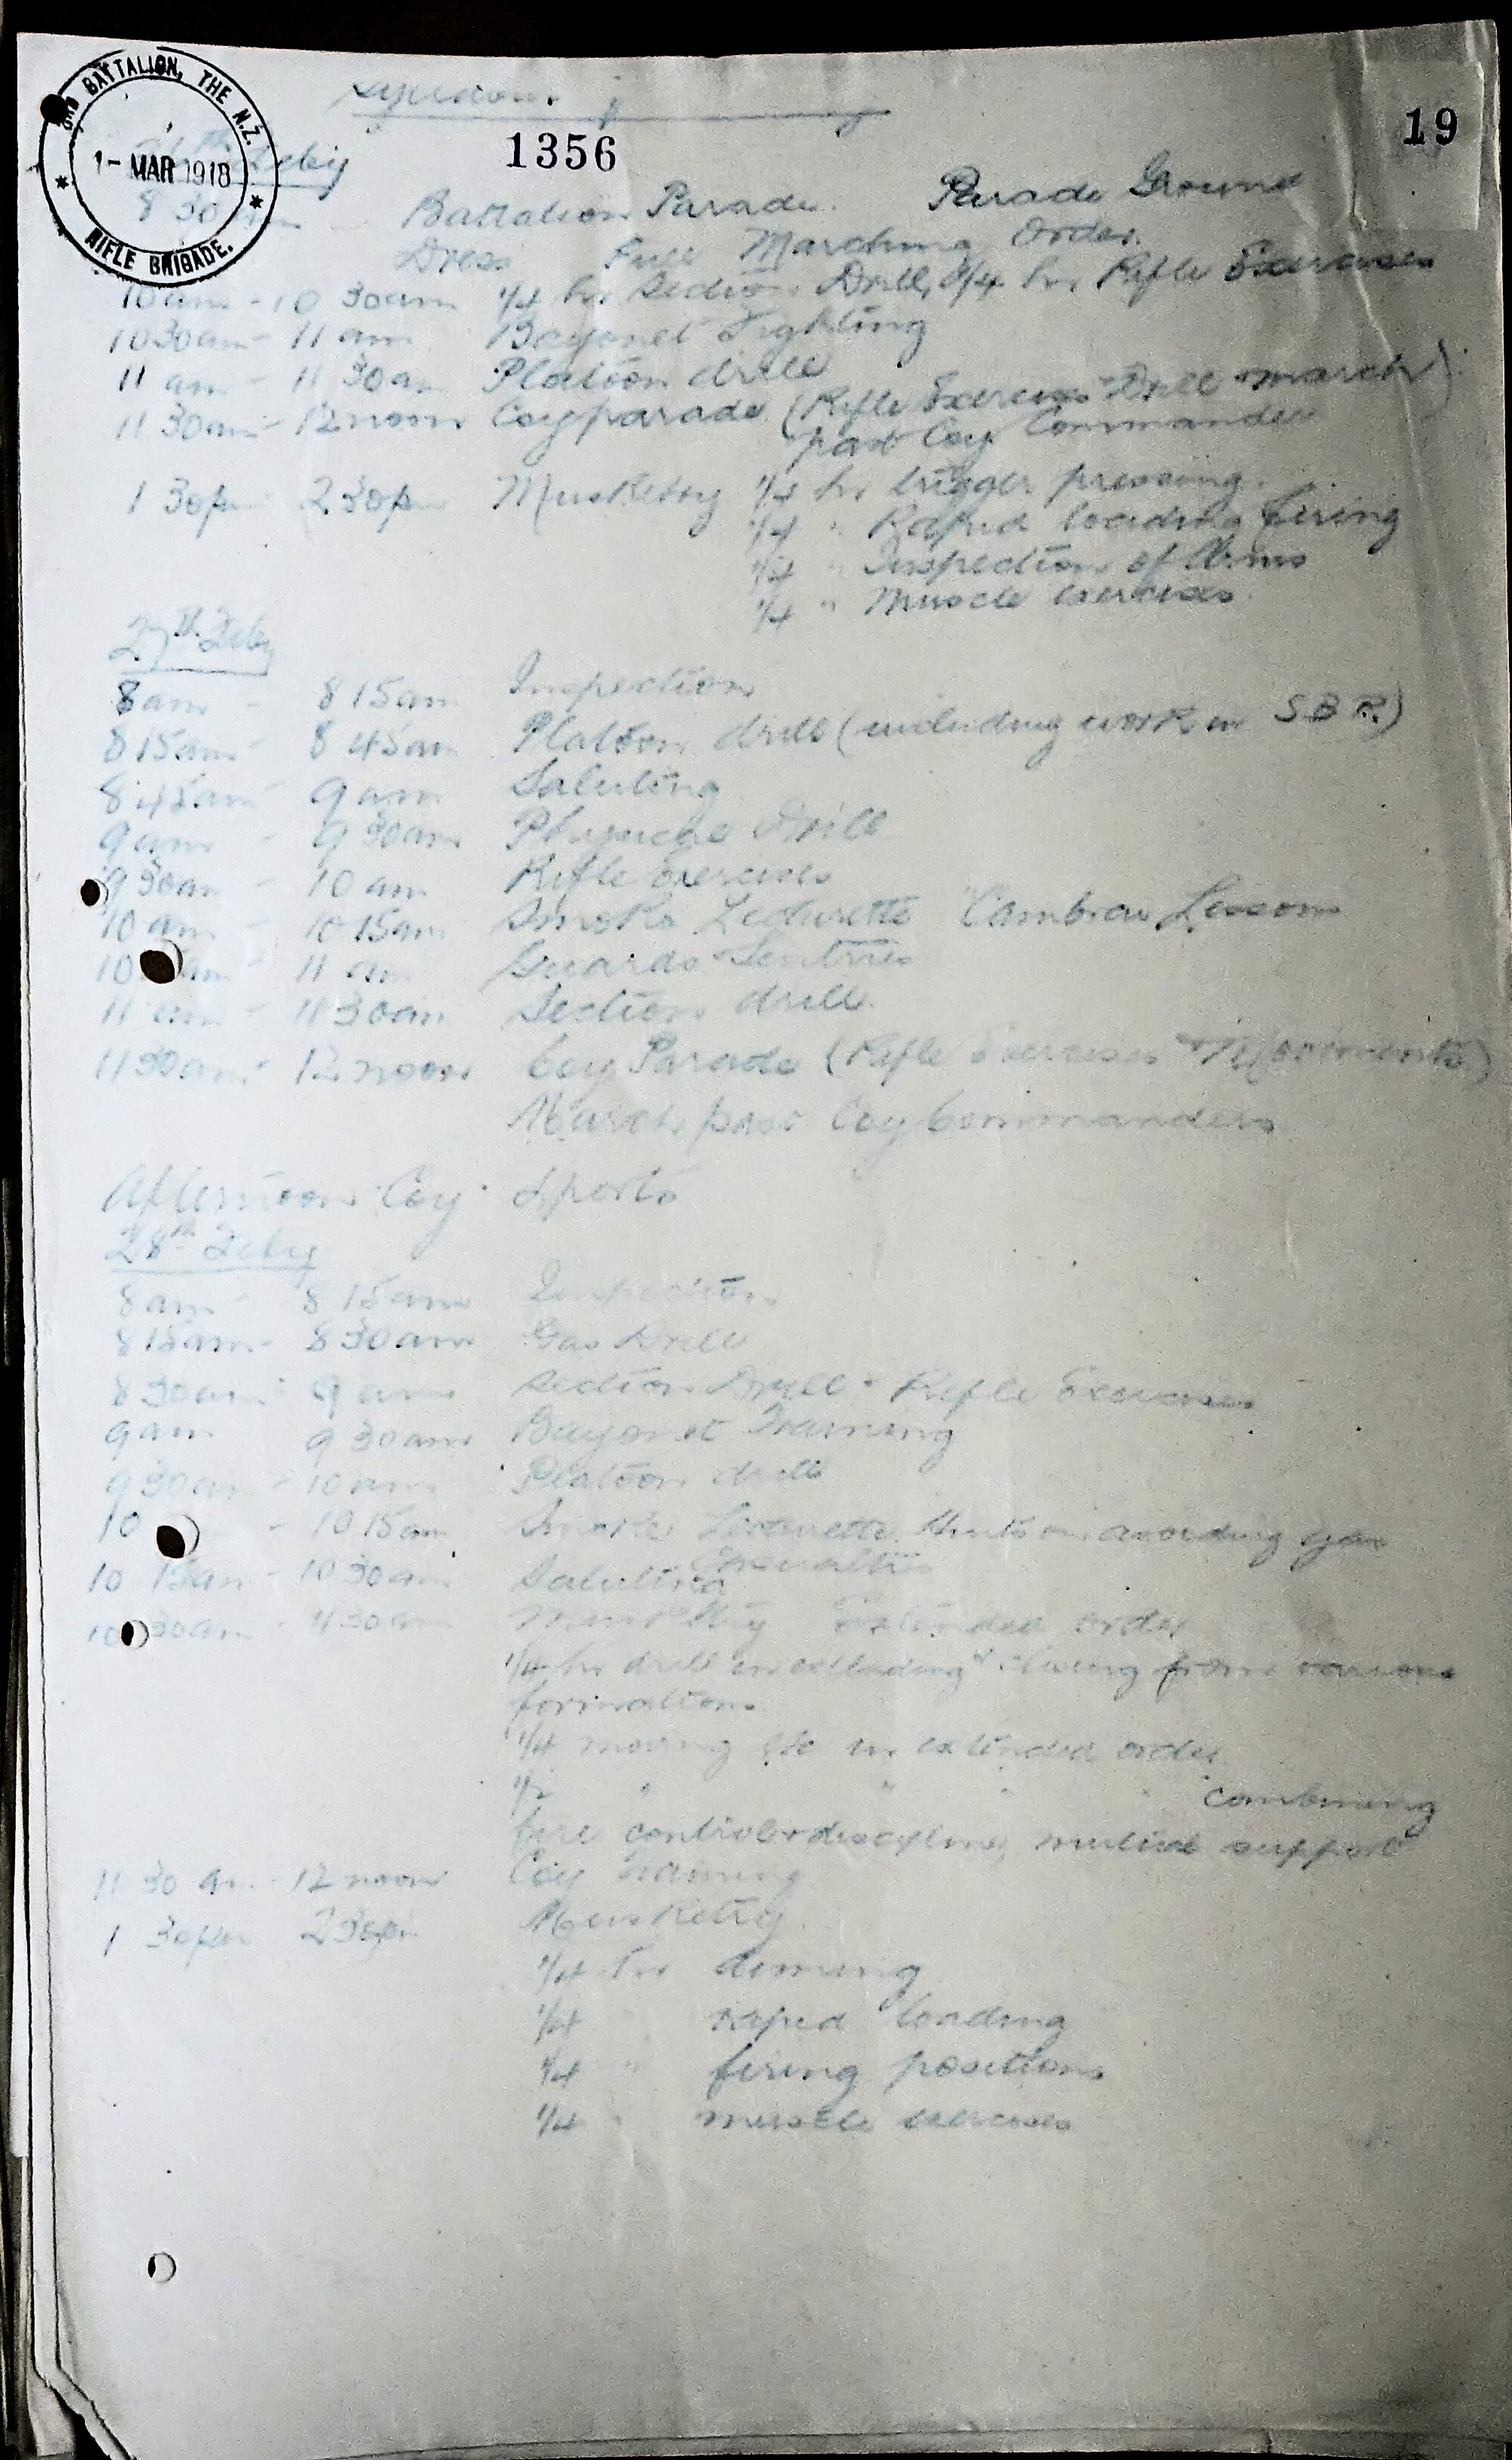 3RD BATTALION, THE N.Z.
RIFLE BRIGADE.
1 - MAR 1918
1356
19
Feby
8 30 am Battalion Parade. Parade Ground
Dress Full Marching Order.
10 am - 10 30am 1/4 hr Section Drill, 1/4 hr Rifle Exercises
10 30am - 11 am Bayonet Fighting
11 am - 11 30am Platoon drill
11 30am - 12 noon Coy parade (Rifle Exercises Drill + march
past Coy Commander)
1 30pm 2 30pm Musketry 1/4 hr trigger pressing.
1/4 " Rapid loading firing
1/4 " Inspection of Arms
1/4 " Muscle exercises.
27th Feby
8am - 8 15am Inspection
8 15am - 8 45am Platoon drill (including work in S.B.R.)
8 45am - 9 am Saluting
9am - 9 30am Physical Drill
9 30am - 10 am Rifle Exercises
10 am - 10 15am Smoko Lecturette "Cambrai Lessons
10 am - 11 am Guards + Sentries
11 am - 11 30am Section drill.
11 30am - 12 noon Coy Parade (Rifle Exercises + Movements)
March past Coy Commanders
Afternoon Coy Sports
28th Feby
8am - 8 15am Inspection.
8 15am - 8 30am Gas Drill
8 30am - 9 am Section Drill + Rifle Exercises
9am 9 30am Bayonet Training
9 30am - 10 am Platoon drill
10 - 10 15am Smoke Lecturette. Hints on avoiding gas
casualties
10 15am - 10 30am Saluting
10 30am - 11 30am Musketry Extended order
1/4 hr drill in extending + closing from various
formations
1/4 moving etc in extended order
1/2 " " " combining
fire control + discipline, mutual support
11 30 am - 12 noon Coy Training
1 30pm 2 30pm Musketry.
1/4 hr aiming
1/4 " rapid loading
1/4 " firing positions
1/4 " muscle exercises